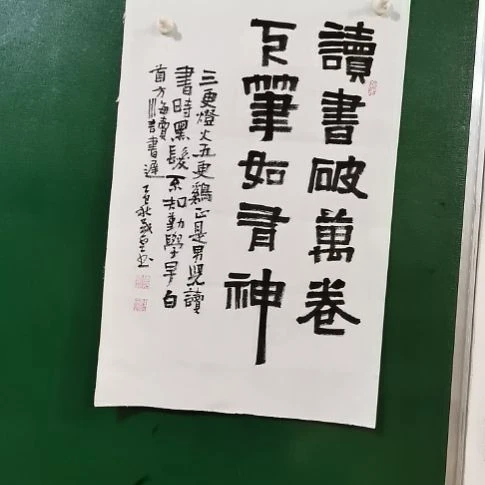 讀書破萬卷
下筆如有神
三更燈火五更鷄正是男児讀
書時黑髮不知勤學早白
首方悔讀書遲
乙巳秋